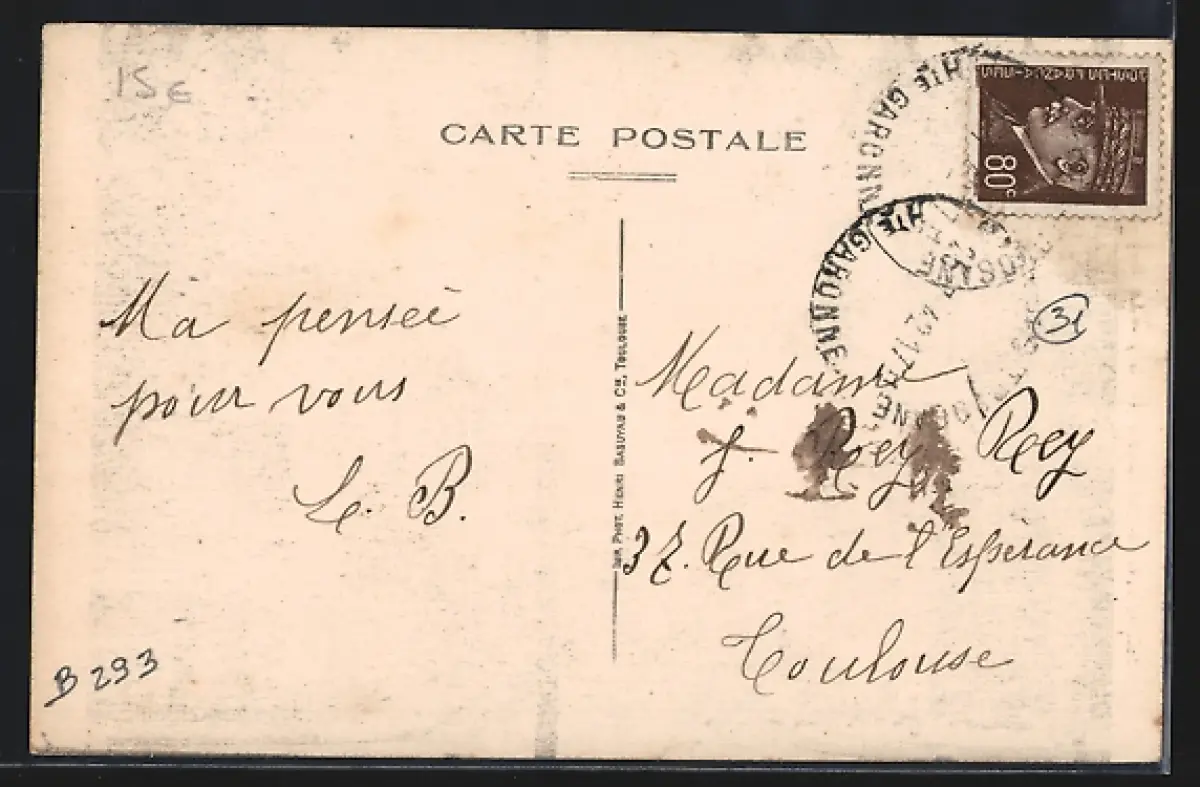 15 €
CARTE POSTALE
HTE GARONNE
80c
HTE GARONNE
31
Ma pensée
pour vous
L. B.
IMP. PHOT. HENRI BASUYAU & CIE, TOULOUSE
Madame
J. Rey Rey
37. Rue de l'Espérance
Toulouse
B 293